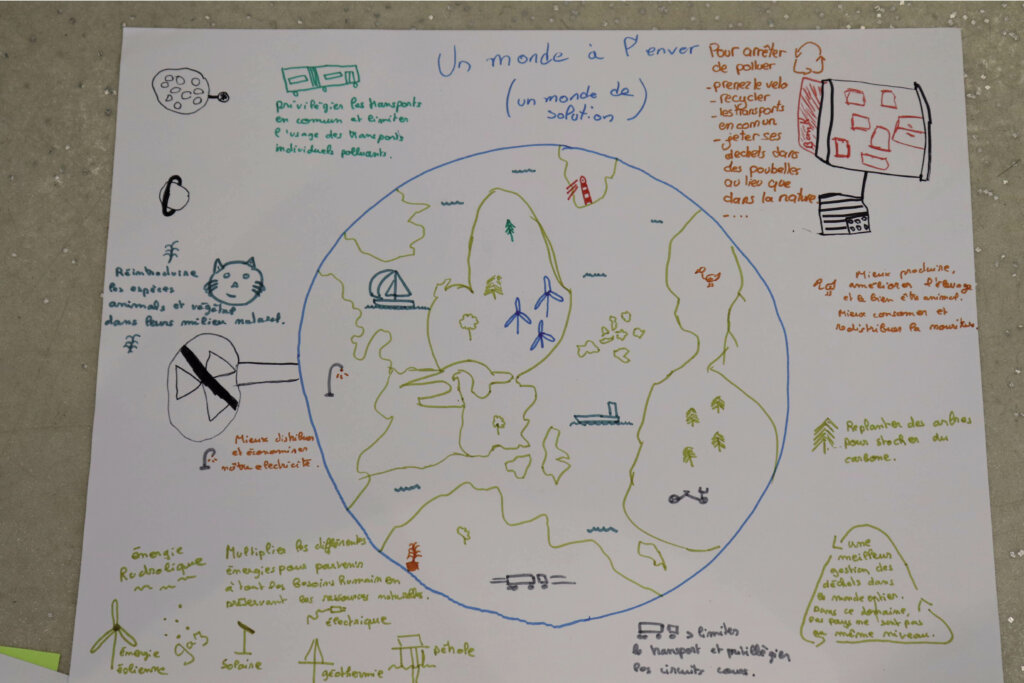 Un monde à l'enver
(un monde de
solution)
privilégier les transports
en commun et limiter
l'usage des transports
individuels polluants.
Pour arrêter
de polluer
- prenez le vélo
- recycler
- les transports
en comun
- jeter ses
dechets dans
des poubelles
au lieu que
dans la nature
- ....
Réintroduire
les espèces
animals et végétal
dans leurs milieu naturel.
Mieux produire,
améliorer l'élevage
et le bien être animal.
Mieux consomer et
redistribuer la nourriture.
Mieux distribuer
et économiser
nôtre electricité.
Replanter des arbres
pour stocker du
carbone.
énergie
hydrolique
Multiplier les différentes
énergies pour parvenir
à tout les besoins humain en
préservant les ressources naturelles.
électrique
énergie
éolienne
gaz
Solaire
géothermie
pétrole
une
meilleur
gestion des
déchets dans
le monde entier.
Dans ce domaine,
les pays ne sont pas
au même niveau.
> limiter
le transport et privillégier
les circuits cours.